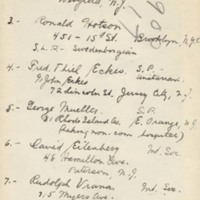 N.J.
2. - Ronald Hotson
451 - 15th St. Brooklyn, N.Y.
S.L.R. - Swedenborgian
4. - Fred. Thiel Eckes. S.P. -
Unitarian.
% John Eckes
72 Lincoln St., Jersey City, N.J.
5. - George Mueller. S.P.
21 Rhode Island Ave. E. Orange, N.J.
6. - David Eilenberg Ind. Soc.
46 Hamilton Ave.
Paterson, N.J.
7. - Rudolph Vrana Ind. Soc.
Myers Ave.